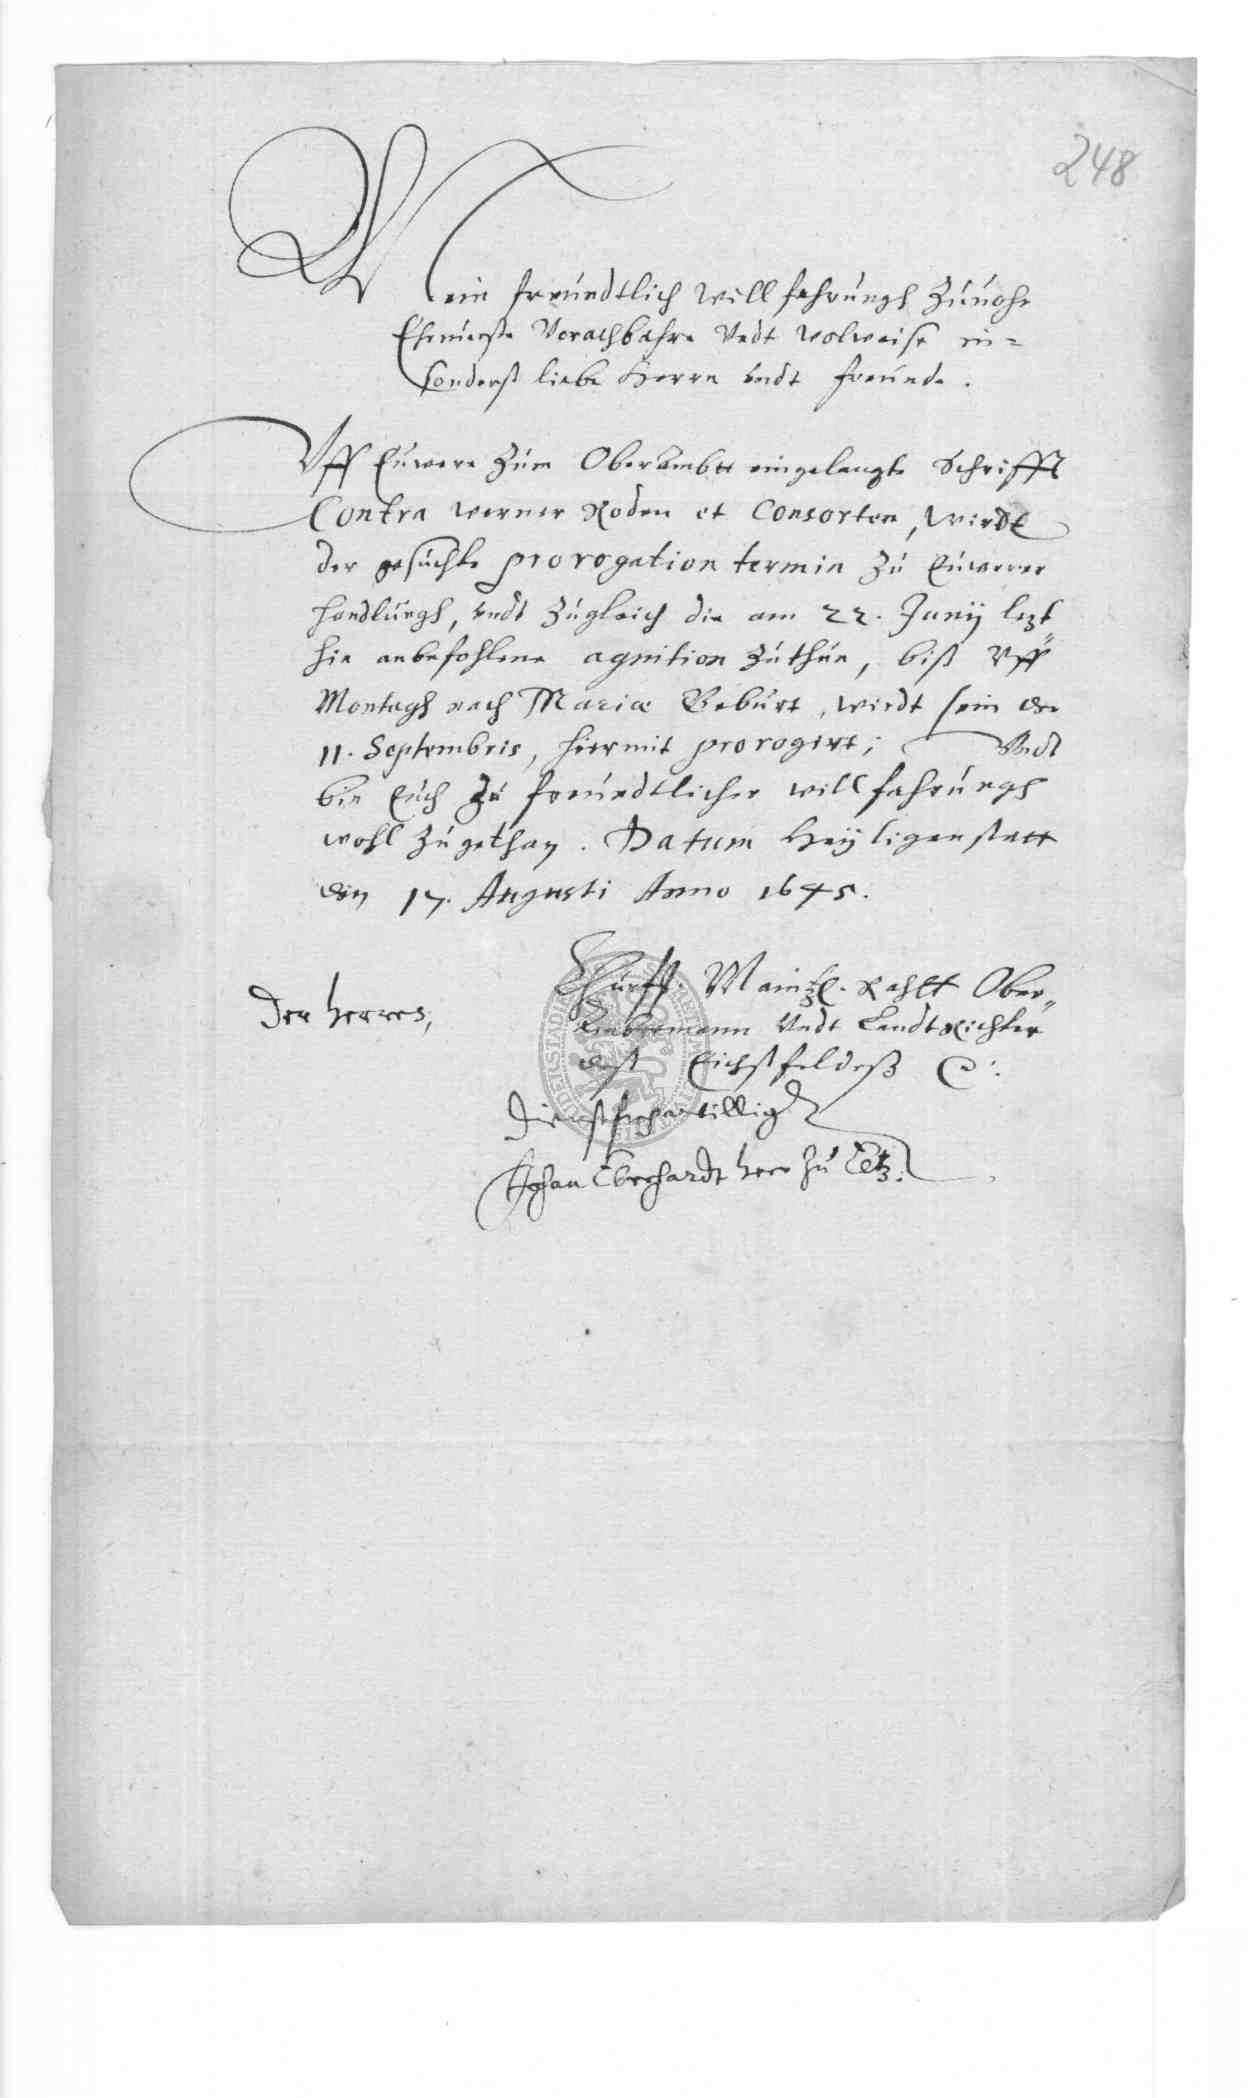 248
Mein freundtlich willfahrungh Zuuohr
Ehrnueste Vorachtbahre Undt wolweise in=
sonderß liebe Herrn undt freunde.
Uff Euwere Zum Oberambtt eingelangte Schrifft
Contra werner Roden et Consorten, wirdt
der gesuchte prorogation termin zu Euwerer
handlungh, undt Zugleich die am 22. Junij lezt
hie anbefohlene agnition Zuthun, biß Uff
Montagh nach Mariæ Geburt, wirdt sein der
11. Septembris, hiermit prorogirt; Undt
bin Euch Zu freundtlicher willfahrungh
wohl Zugethan. Datum Heyligenstatt
den 17. Augusti Anno 1645.
Churf. Maintzl. Rahtt Ober-
Ambtmann Undt Landt Richter
deß Eichßfeldeß
Der Herren,
Dienstfreywillig
Johan Eberhardt Herr Zu Eltz.